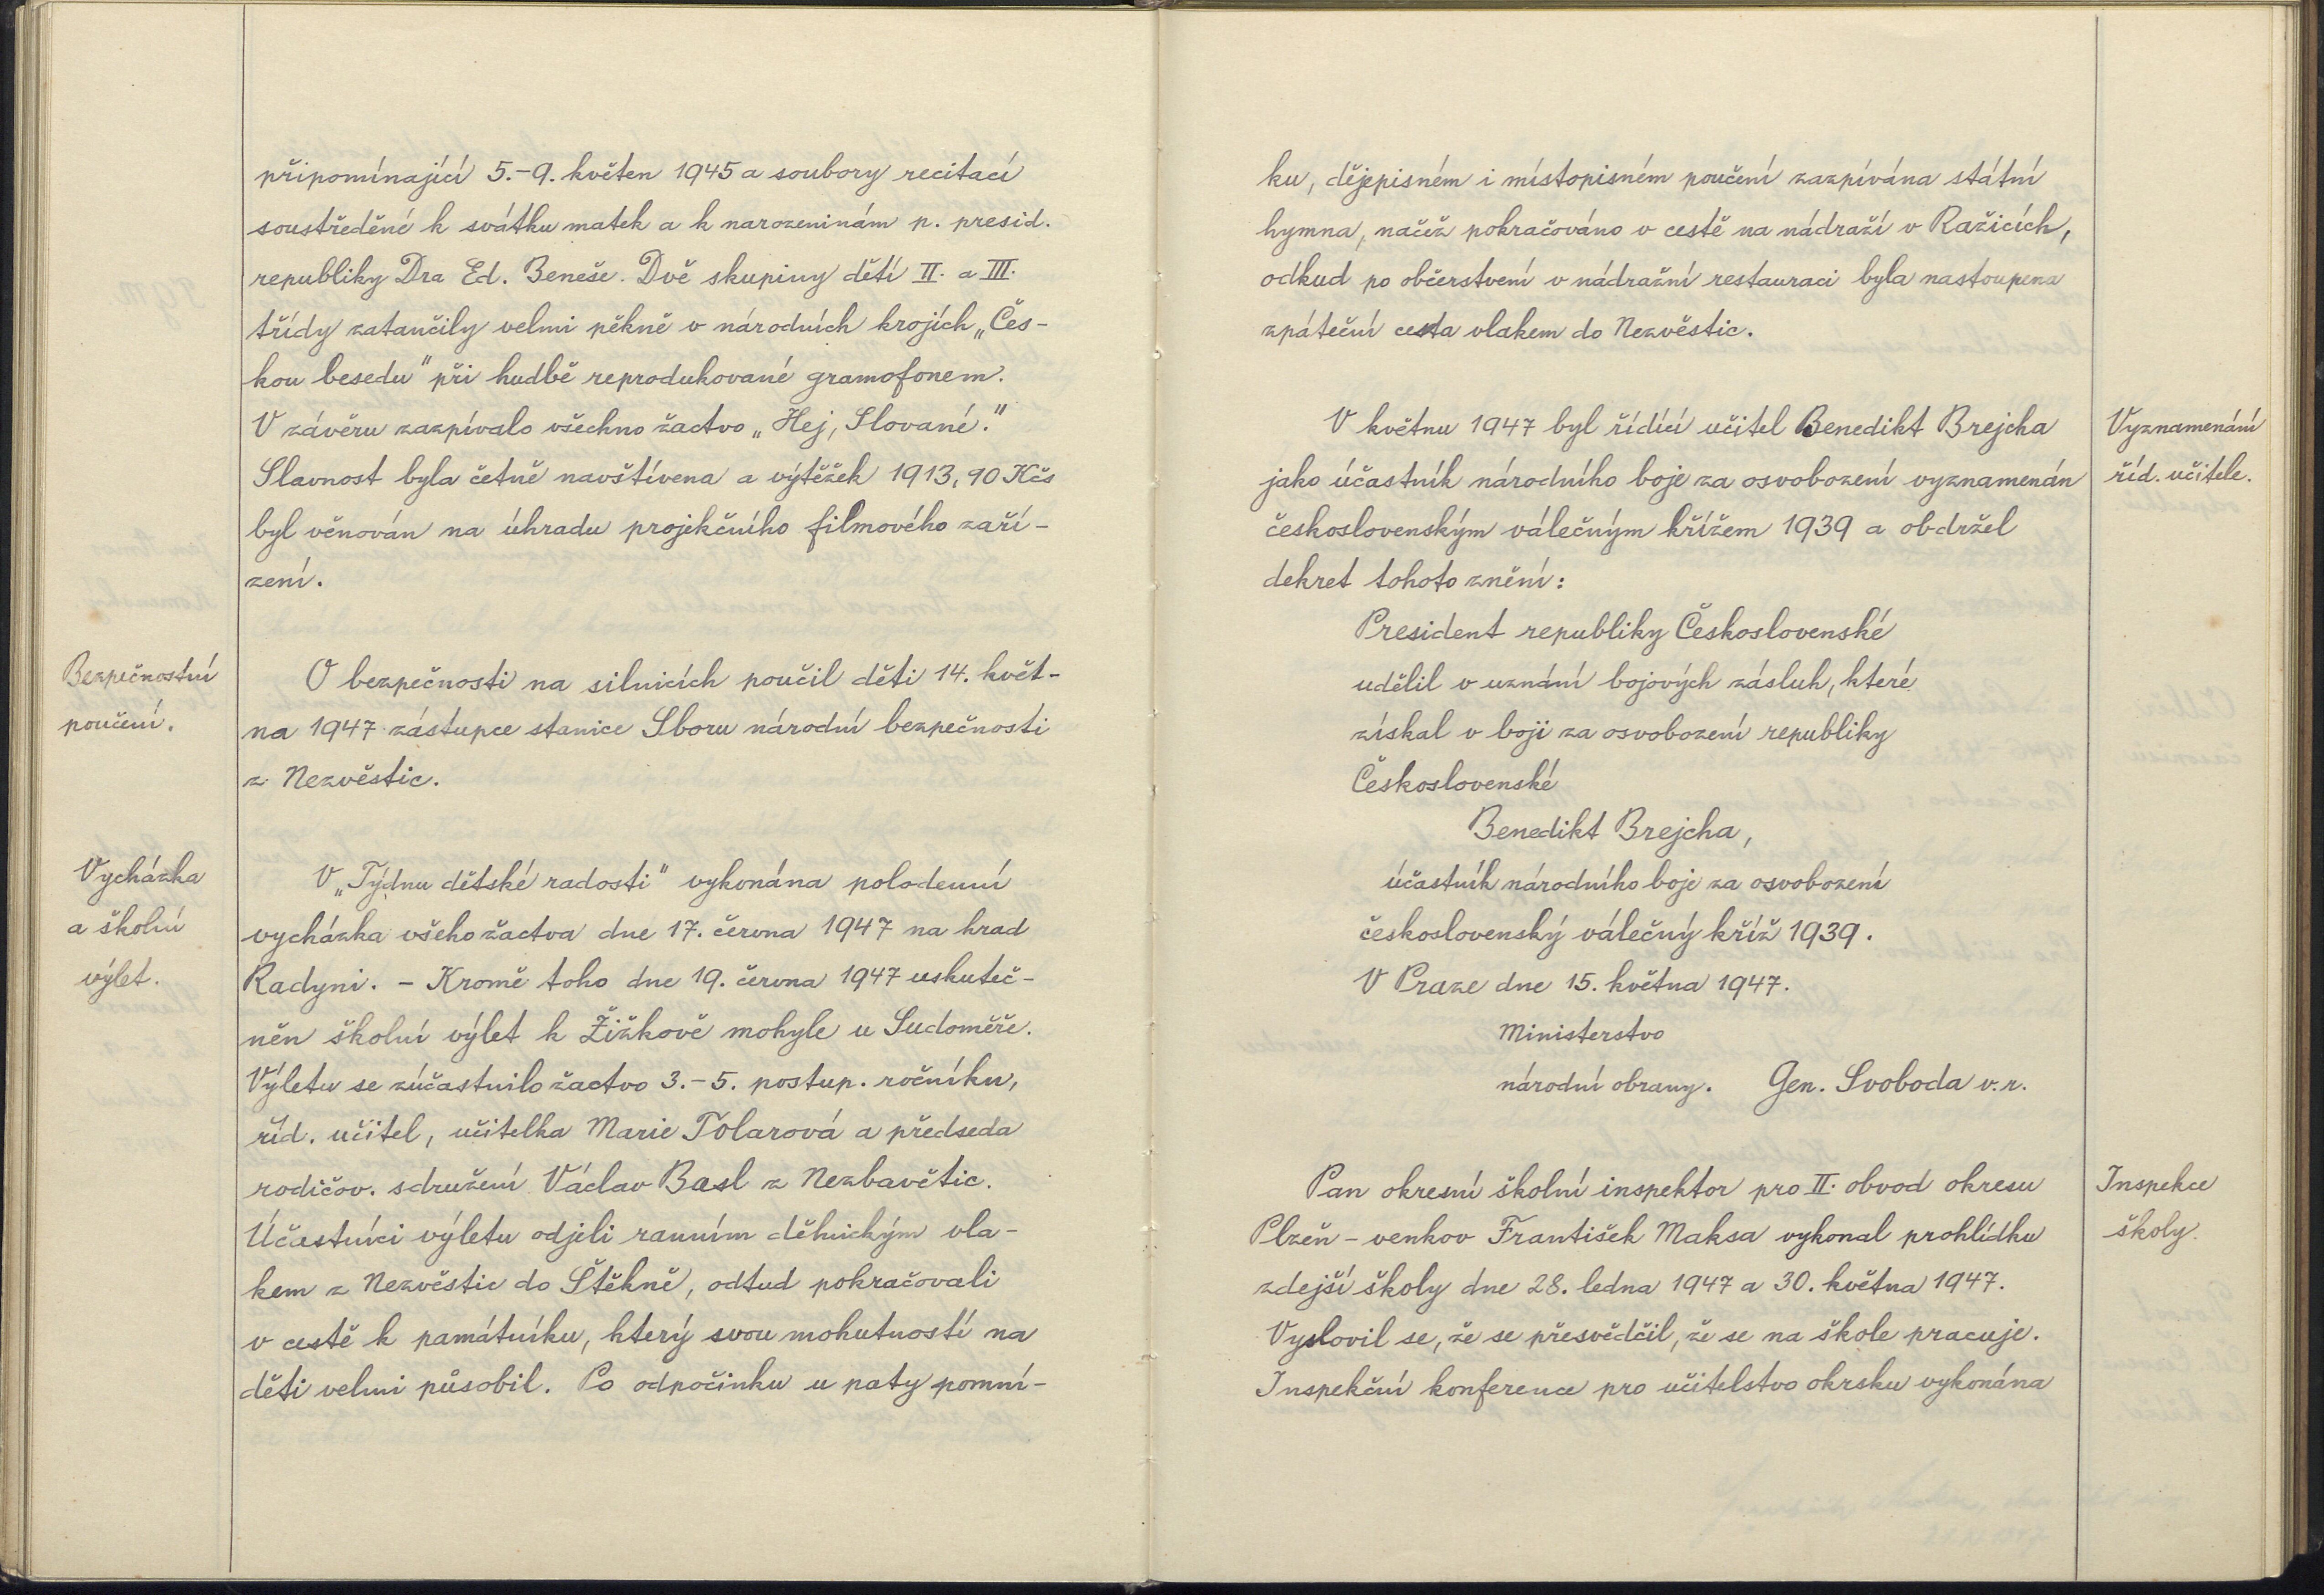 připomínající 5.-9. květen 1945 a soubory recitací
soustředěné k svátku matek a k narozeninám p. presid.
republiky Dra Ed. Beneše. Dvě skupiny dětí II. a III.
třídy zatančily velmi pěkně v národních krojích „Čes-
kou besedu" při hudbě reprodukované gramofonem.
V závěru zazpívalo všechno žactvo „Hej, Slované."
Slavnost byla četně navštívena a výtěžek 1913,90 Kčs
byl věnován na úhradu projekčního filmového zaří-
zení.
Bezpečnostní
poučení.
O bezpečnosti na silnicích poučil děti 14. květ-
na 1947 zástupce stanice Sboru národní bezpečnosti
z Nezvěstic.
Vycházka
a školní
výlet.
V „Týdnu dětské radosti" vykonána polodenní
vycházka všeho žactva dne 17. června 1947 na hrad
Radyni. - Kromě toho dne 19. června 1947 uskuteč-
něn školní výlet k Žižkově mohyle u Sudoměře.
Výletu se zúčastnilo žactvo 3.-5. postup. ročníku,
říd. učitel, učitelka Marie Tolarová a předseda
rodičov. sdružení Václav Basl z Nezbavětic.
Účastníci výletu odjeli ranním dělnickým vla-
kem z Nezvěstic do Štěkně, odtud pokračovali
v cestě k památníku, který svou mohutností na
děti velmi působil. Po odpočinku u paty pomní-
ku, dějepisném i místopisném poučení zazpívána státní
hymna, načež pokračováno v cestě na nádraží v Ražicích,
odkud po občerstvení v nádražní restauraci byla nastoupena
zpáteční cesta vlakem do Nezvěstic.
V květnu 1947 byl řídící učitel Benedikt Brejcha
jako účastník národního boje za osvobození vyznamenán
československým válečným křížem 1939 a obdržel
dekret tohoto znění:
Vyznamenání
říd. učitele.
President republiky Československé
udělil v uznání bojových zásluh, které
získal v boji za osvobození republiky
Československé
Benedikt Brejcha,
účastník národního boje za osvobození
československý válečný kříž 1939.
V Praze dne 15. května 1947.
Ministerstvo
národní obrany. Gen. Svoboda v.r.
Pan okresní školní inspektor pro II. obvod okresu
Plzeň - venkov František Maksa vykonal prohlídku
zdejší školy dne 28. ledna 1947 a 30. května 1947.
Vyslovil se, že se přesvědčil, že se na škole pracuje.
Inspekční konference pro učitelstvo okrsku vykonána
Inspekce
školy.